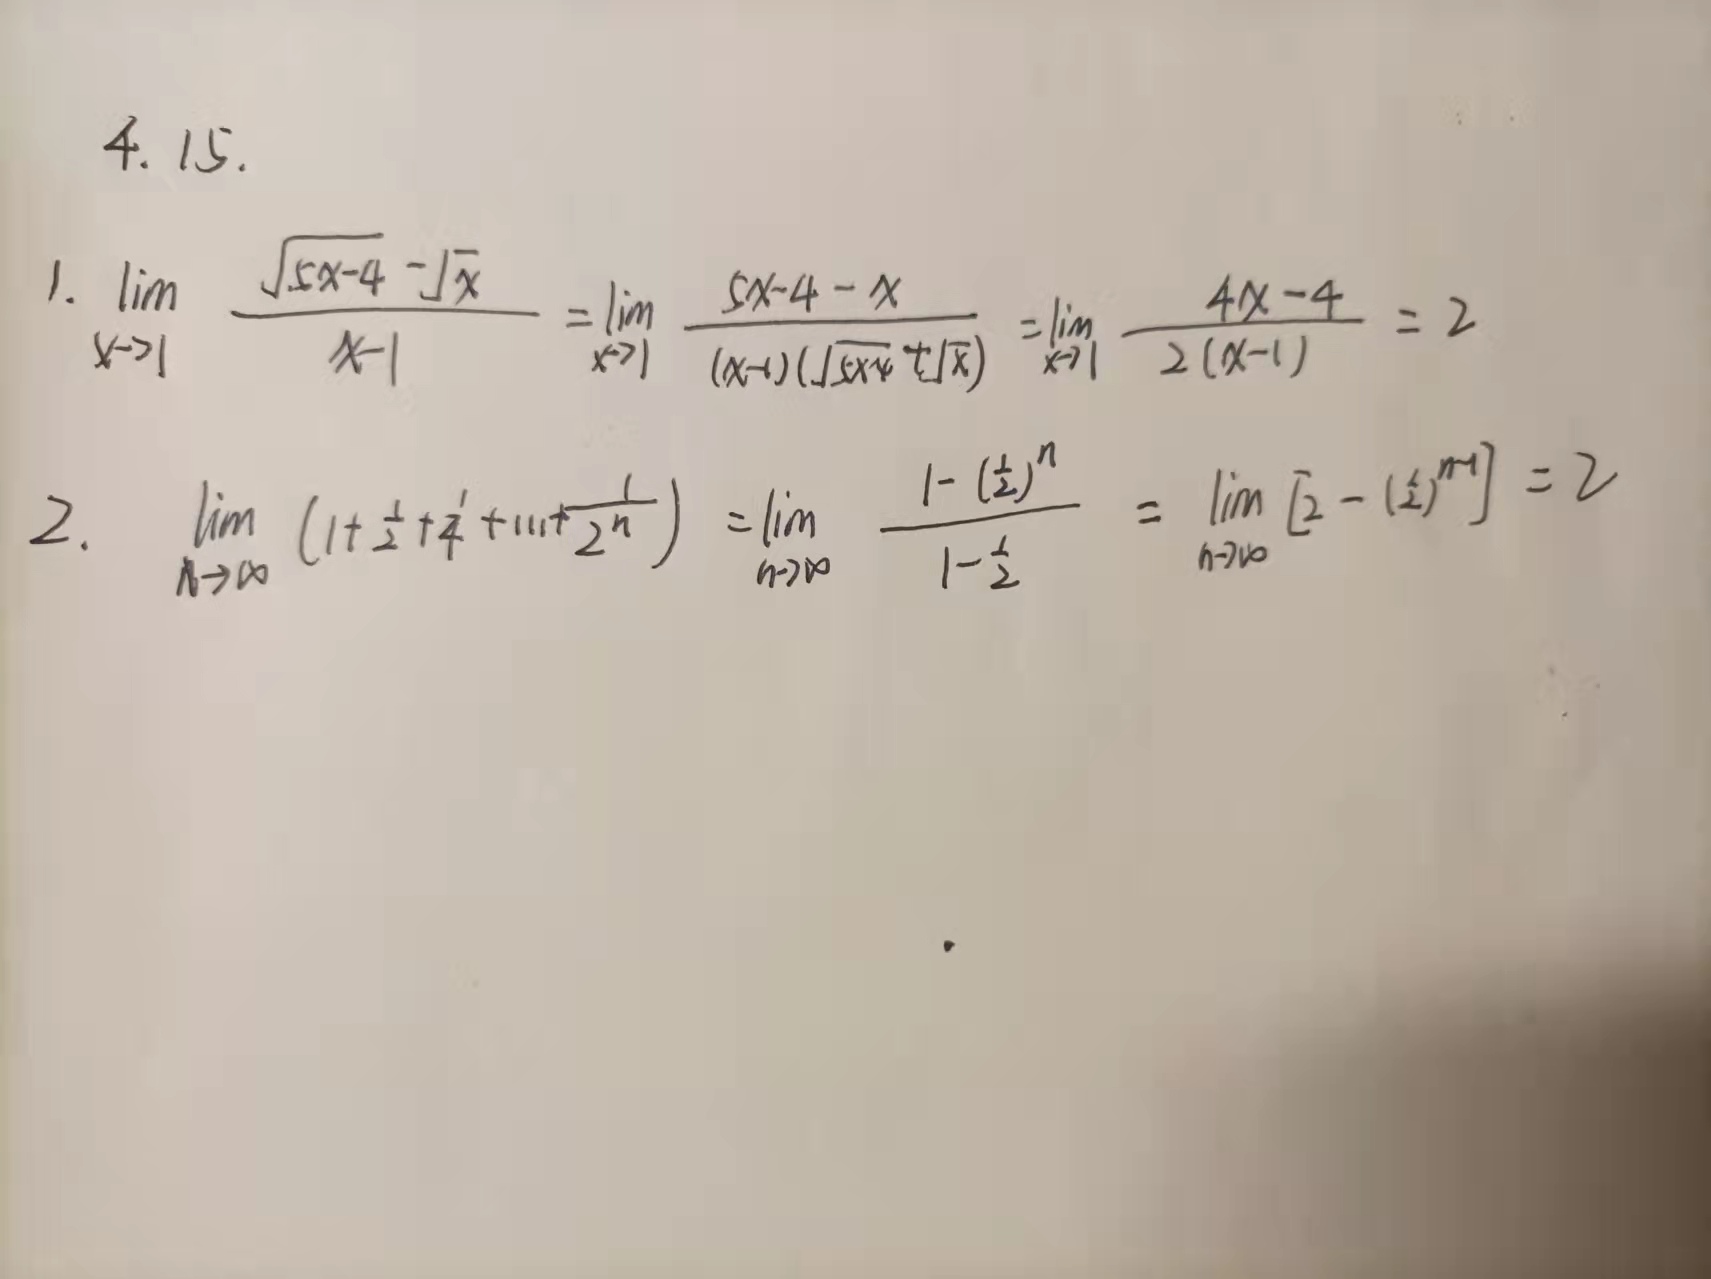 4.15.
1. lim_{x→1} \frac{\sqrt{5x-4}-\sqrt{x}}{x-1} = lim_{x→1} \frac{5x-4-x}{(x-1)(\sqrt{5x-4}+\sqrt{x})} = lim_{x→1} \frac{4x-4}{2(x-1)} = 2
2. lim_{n→∞} (1+\frac{1}{2}+\frac{1}{4}+...+\frac{1}{2^n}) = lim_{n→∞} \frac{1-(\frac{1}{2})^n}{1-\frac{1}{2}} = lim_{n→∞} [2-(\frac{1}{2})^{n-1}] = 2